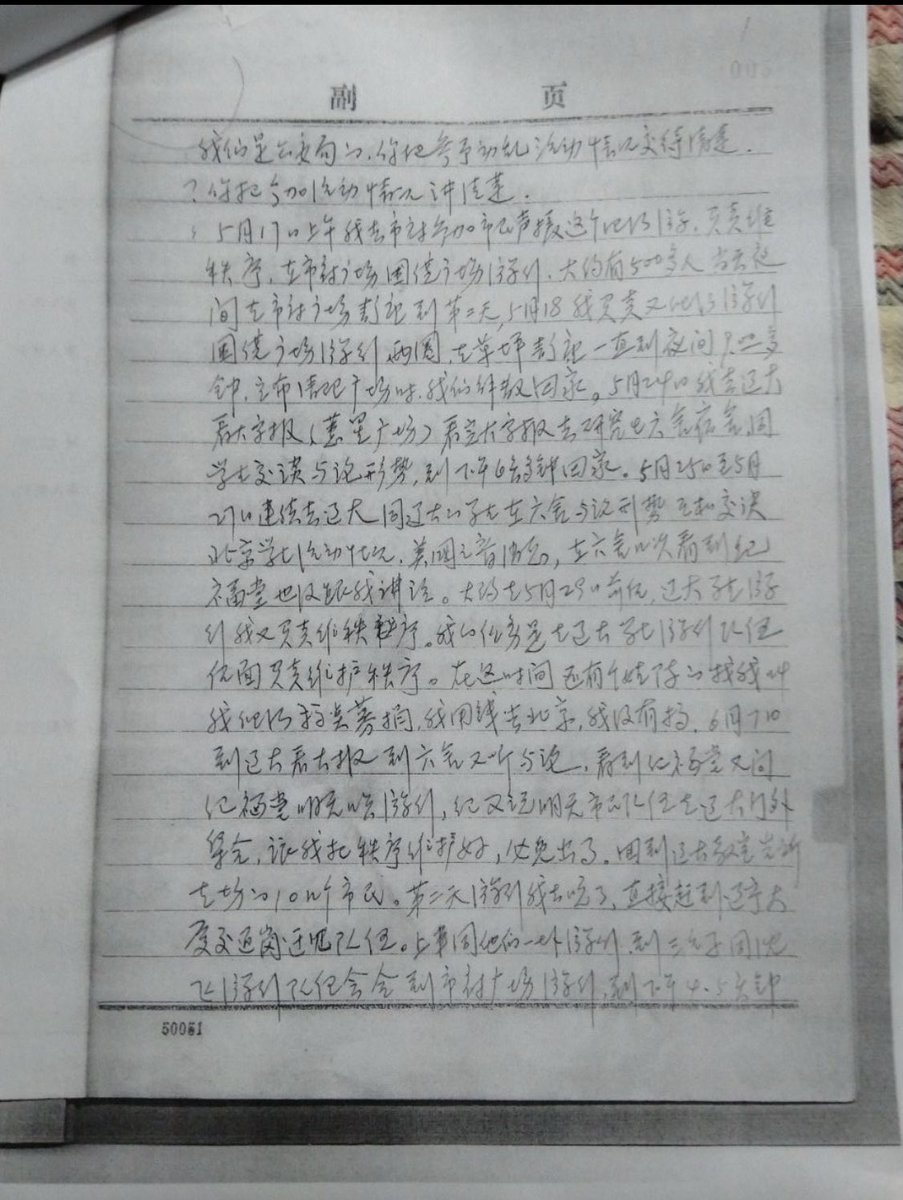 副 页
我们是公安局的,你把参予动乱活动情况交待清楚.
?你把参加活动情况讲清楚.
5月17日上午我去市府参加市民声援这个地方游行.负责维
秩序,在市府广场围绕广场游行,大约有500多人 当天夜
间在市府广场静坐到第二天,5月18 我负责又 游行
围绕广场游行两圈,在草坪静坐一直到夜间9点多
钟,宣布清理广场时,我们解散回家。5月24日我去辽大
看大字报(慧星广场)看完大字报去研究生六舍宿舍,同
学生交谈与论形势,到下午6点多钟回家。5月25日至5月
27日连续去辽大同辽大的学生在六舍 论形势互相交谈
北京学生活动状况,美国之音消息,在六舍几次看到纪
福堂也没跟我讲话。大约在5月29日前后,辽大学生游
行我又负责维秩序。我的任务是在辽大学生游行队伍
后面负责维护秩序。在这时间还有个姓陈的找我叫
我 募捐,我用钱去北京,我没有搞,6月7日
到辽大看大报 到六舍又听 论,看到纪福堂又问
纪福堂明天 游行,纪又说明天市民队伍在辽大门外
集合,让我把秩序维护好,以免出事。回到辽大教室
在场的10几个市民。第二天游行我去晚了,直接赶到辽宁大
队伍。上车同他们一块游行,到三台子同
飞游行队伍会合到市府广场游行,到下午4.5点钟
50051